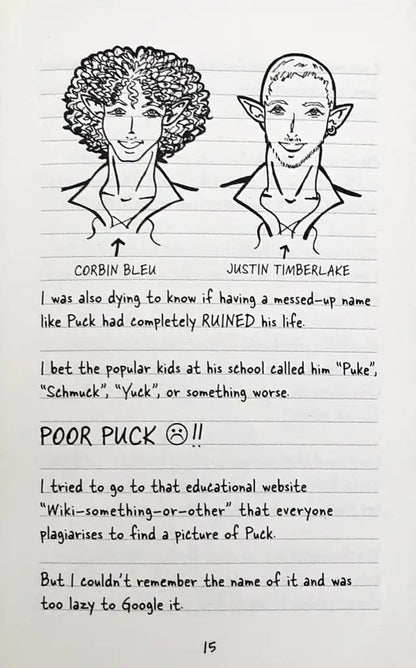 CORBIN BLEU JUSTIN TIMBERLAKE
I was also dying to know if having a messed-up name
like Puck had completely RUINED his life.
I bet the popular kids at his school called him "Puke",
"Schmuck", "Yuck", or something worse.
POOR PUCK ☹!!
I tried to go to that educational website
"Wiki-something-or-other" that everyone
plagiarises to find a picture of Puck.
But I couldn't remember the name of it and was
too lazy to Google it.
15